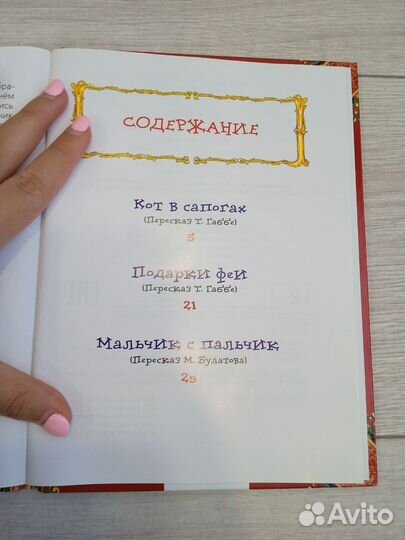 бра-
чём
ись
чик
СОДЕРЖАНИЕ
Кот в сапогах
(Пересказ Т. Габбе)
5
Подарки феи
(Пересказ Т. Габбе)
21
Мальчик с пальчик
(Пересказ М. Булатова)
29
Avito